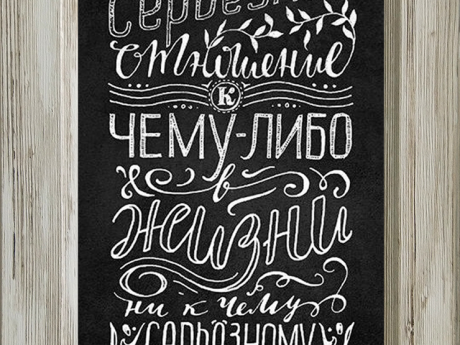 Серьёзное
отношение
к
ЧЕМУ-ЛИБО
в
жизни
ни к чему
СЕРЬЁЗНОМУ